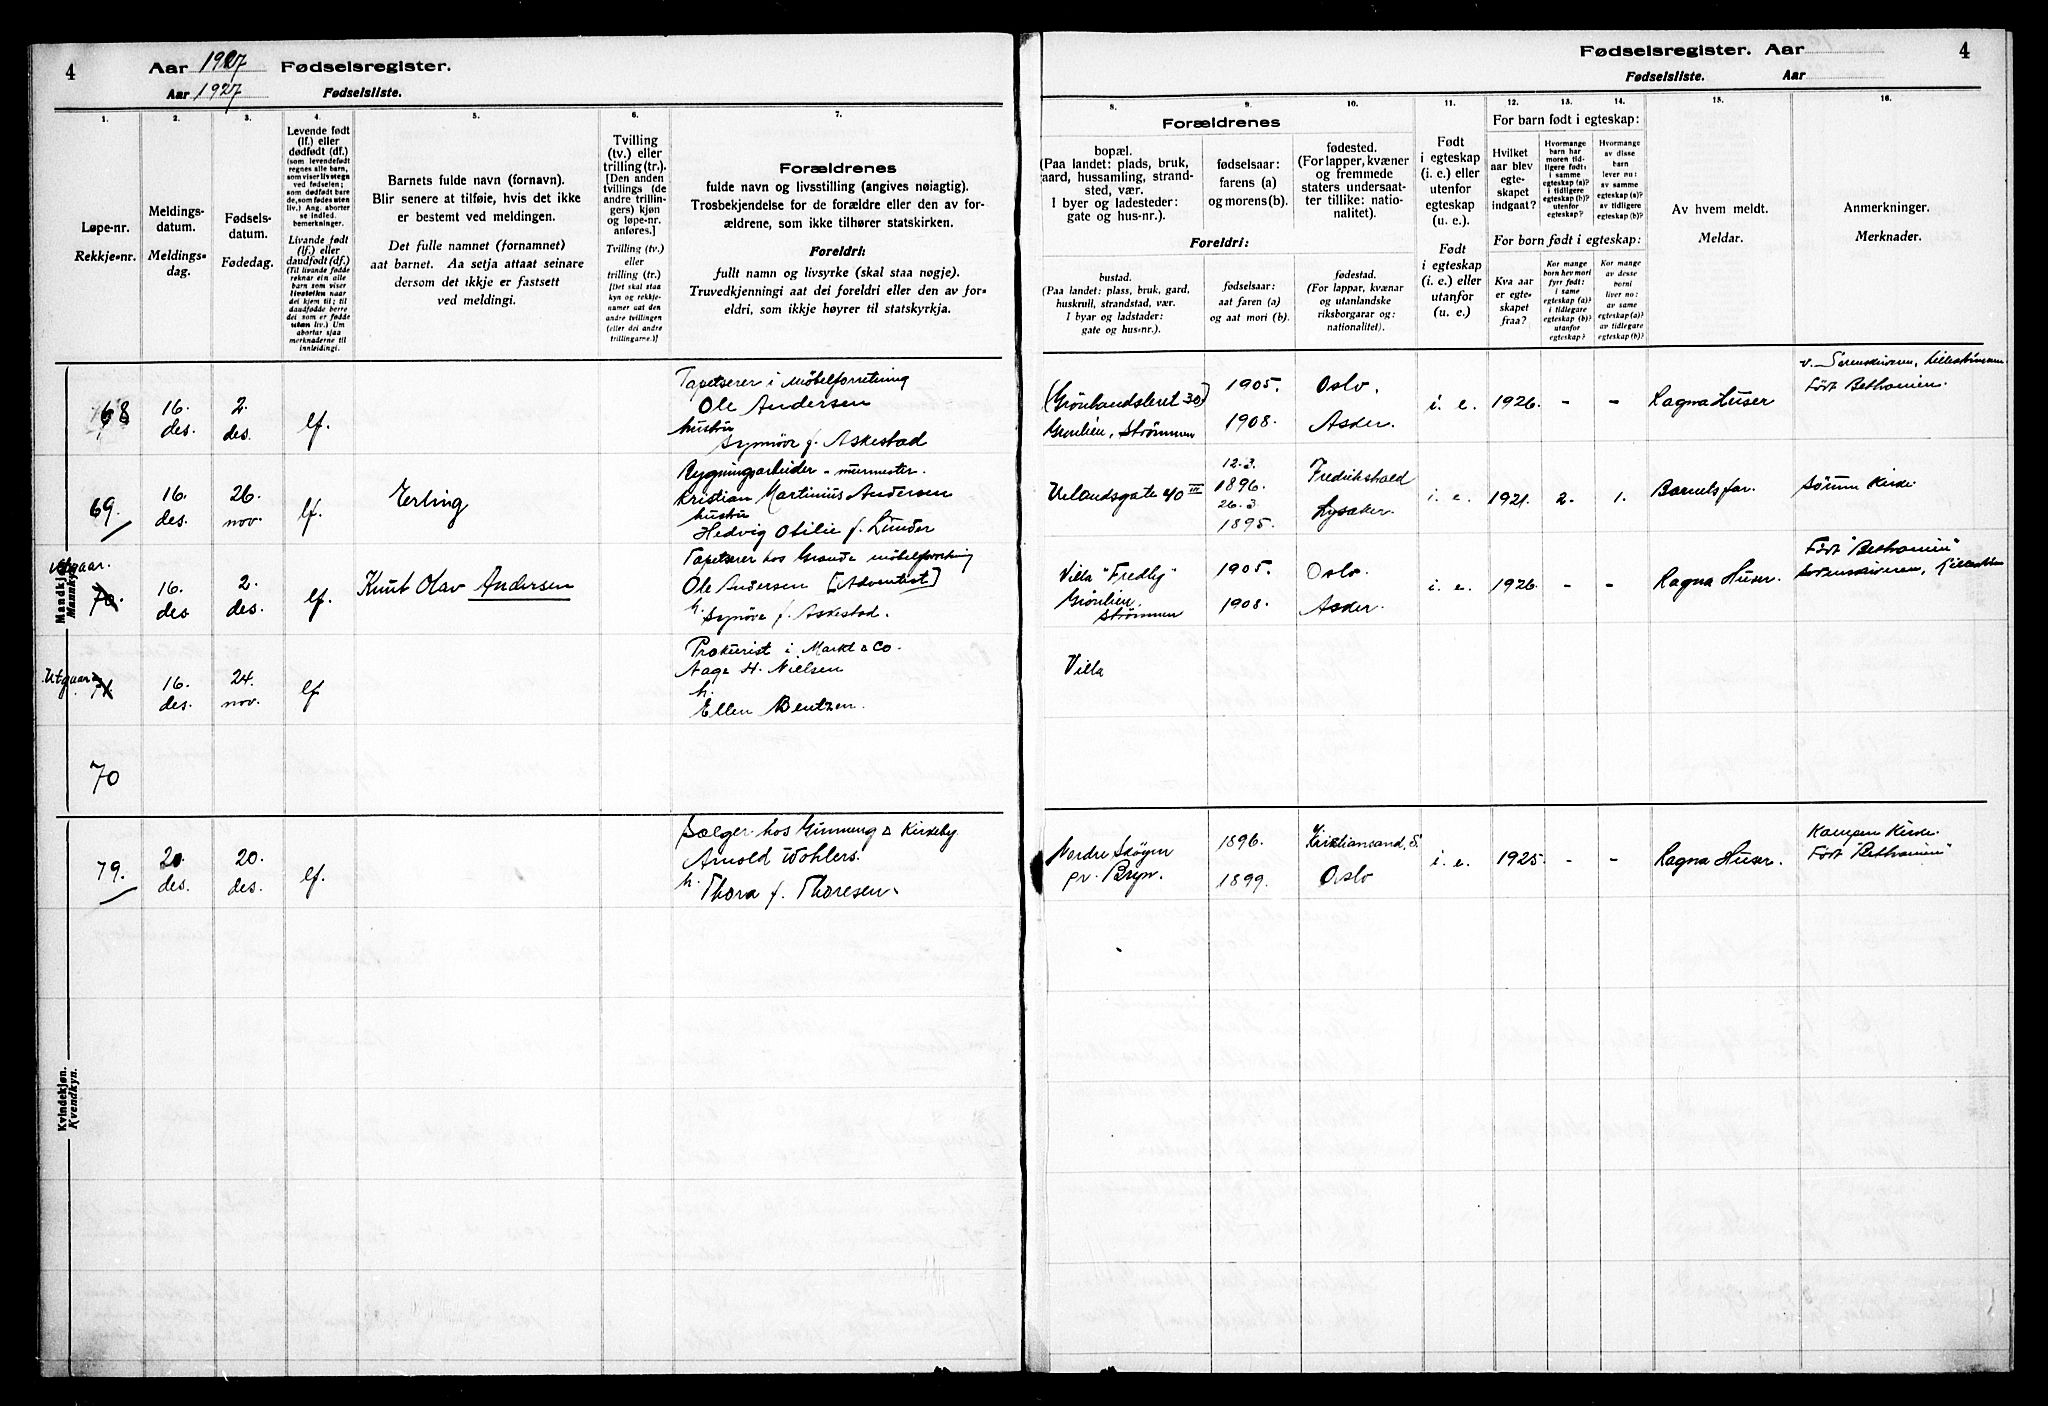 4
Aar 1927 Fødselsregister.
Aar 1927 Fødselsliste.
1.
Løpe-nr.
Rekkje-nr.
2.
Meldings-
datum.
Meldings-
dag.
3.
Fødsels-
datum.
Fødedag.
4.
Levende født
(lf.) eller
dødfødt (df.)
(som levendefødt
regnes alle barn,
som viser livstegn
ved fødselen;
som dødfødt bare
de, som fødes uten
liv.) Ang. aborter
se indled.
bemerkninger.
Livande født
(lf.) eller
daudfødt (df.)
(Til livande fødde
reknar ein alle
barn som viser
livsteikn naar
dei kjem til; til
daudfødde berre
dei som er fødde
utan liv.) Um
abortar sjaa
merknaderne til
innleidingi.
5.
Barnets fulde navn (fornavn).
Blir senere at tilføie, hvis det ikke
er bestemt ved meldingen.
Det fulle namnet (fornamnet)
aat barnet. Aa setja attaat seinare
dersom det ikkje er fastsett
ved meldingi.
6.
Tvilling
(tv.) eller
trilling (tr.).
[Den anden
tvillings (de
andre trillin-
gers) kjøn
og løpe-nr.
anføres.]
Tvilling (tv.)
eller
trilling (tr.)
[Det skal staa
kyn og rekkje-
numer aat den
andre tvillingen
(eller dei andre
trillingarne.)]
7.
Forældrenes
fulde navn og livsstilling (angives nøiagtig).
Trosbekjendelse for de forældre eller den av for-
ældrene, som ikke tilhører statskirken.
Foreldri:
fullt namn og livsyrke (skal staa nøgje).
Truvedkjenningi aat dei foreldri eller den av for-
eldri, som ikkje høyrer til statskyrkja.
Mandkjøn.
Mannkyn.
68
16.
des.
2.
des.
lf.
Tapetserer i møbelforretning
Ole Andersen
hustru
Synnøve f. Askestad
69.
16.
des.
26.
nov.
lf.
Erling
Bygningsarbeider - murmester.
Kristian Martinius Andersen
hustru
Hedvig Otilie f. Lunder
Utgaar.
70.
16.
des
2.
des.
lf.
Knut Olav Andersen
Tapetserer hos Grande møbelforretning
Ole Andersen [Adventist]
h.
Synøve f. Askestad.
Utgaar
71
16.
des.
24.
nov.
lf
Prokurist i Markt & Co.
Aage H. Nielsen
h.
Ellen Bentzen.
70
Kvindekjøn.
Kvendkyn.
79.
20.
des.
20.
des.
lf.
Sælger hos Gunneng & Kirkeby
Arnold Wohlers.
h.
Thora f. Thoresen.
Fødselsregister. Aar
4
Fødselsliste. Aar
8.
Forældrenes
bopæl.
(Paa landet: plads, bruk,
gaard, hussamling, strand-
sted, vær.
I byer og ladesteder:
gate og hus-nr.).
9.
fødselsaar:
farens (a)
og morens (b).
10.
fødested.
(For lapper, kvæner
og fremmede
staters undersaat-
ter tillike: natio-
nalitet).
Foreldri:
bustad.
(Paa landet: plass, bruk, gard,
huskrull, strandstad, vær.
I byar og ladstader:
gate og hus-nr.).
fødselsaar:
aat faren (a)
og aat mori (b).
fødestad.
(For lappar, kvænar
og utanlandske
riksborgarar og:
nationalitet).
11.
Født
i egteskap
(i. e.) eller
utenfor
egteskap
(u. e.).
Født
i egteskap
(i. e.) eller
utanfor
egteskap
(u. e.)
12.
13.
14.
For barn født i egteskap:
Hvilket
aar blev
egte-
skapet
indgaat?
Hvormange
barn har
moren tid-
ligere født:
i samme
egteskap (a)?
i tidligere
egteskap (b)?
utenfor
egteskap?
Hvormange
av disse
barn
lever nu:
av samme
egteskap (a)?
av tidligere
egteskap (b)?
For born født i egteskap:
Kva aar
er egte-
skapet
fraa?
Kor mange
born hev mori
fyrr født:
i same
egteskap (a)?
i tidlegare
egteskap (b)?
utanfor
egteskap?
Kor mange
av desse
borni
liver no:
av same
egteskap (a)?
av tidlegare
egteskap (b)?
15.
Av hvem meldt.
Meldar.
16.
Anmerkninger.
Merknader.
(Grønlandsleret 30)
Grønlien, Strømmen
1905.
1908.
Oslo.
Asker.
i. e.
1926.
-
-
Ragna Huser
v. Sorenskriveren, Lillestrømmen
Født Bethanien.
Uelandsgate 40 III
12.3.
1896.
26.3
1895.
Fredrikshald
Lysaker.
i. e.
1921.
2.
1.
Barnets far.
Sørum Kirke.
Villa "Fredly"
Grønlien.
Strømmen
1905.
1908.
Oslo.
Asker.
i. e.
1926.
-
-
Ragna Huser.
Født "Bethanien"
Sorenskriveren,
Villa
Nordre Skøyen
pr. Bryn.
1896.
1899.
Kristiansand, S.
Oslo
i. e.
1925.
-
-
Ragna Huser.
Kampen Kirke.
Født "Bethanien"